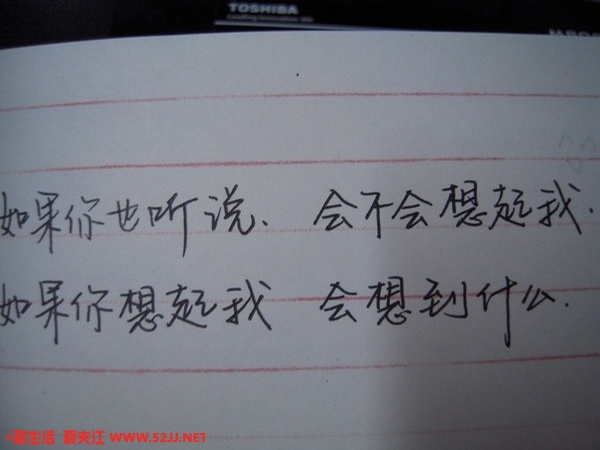 TOSHIBA
Leading Innovation >>>
如果你也听说、 会不会想起我.
如果你想起我 会想到什么.
爱生活 爱夹江 WWW.52JJ.NET